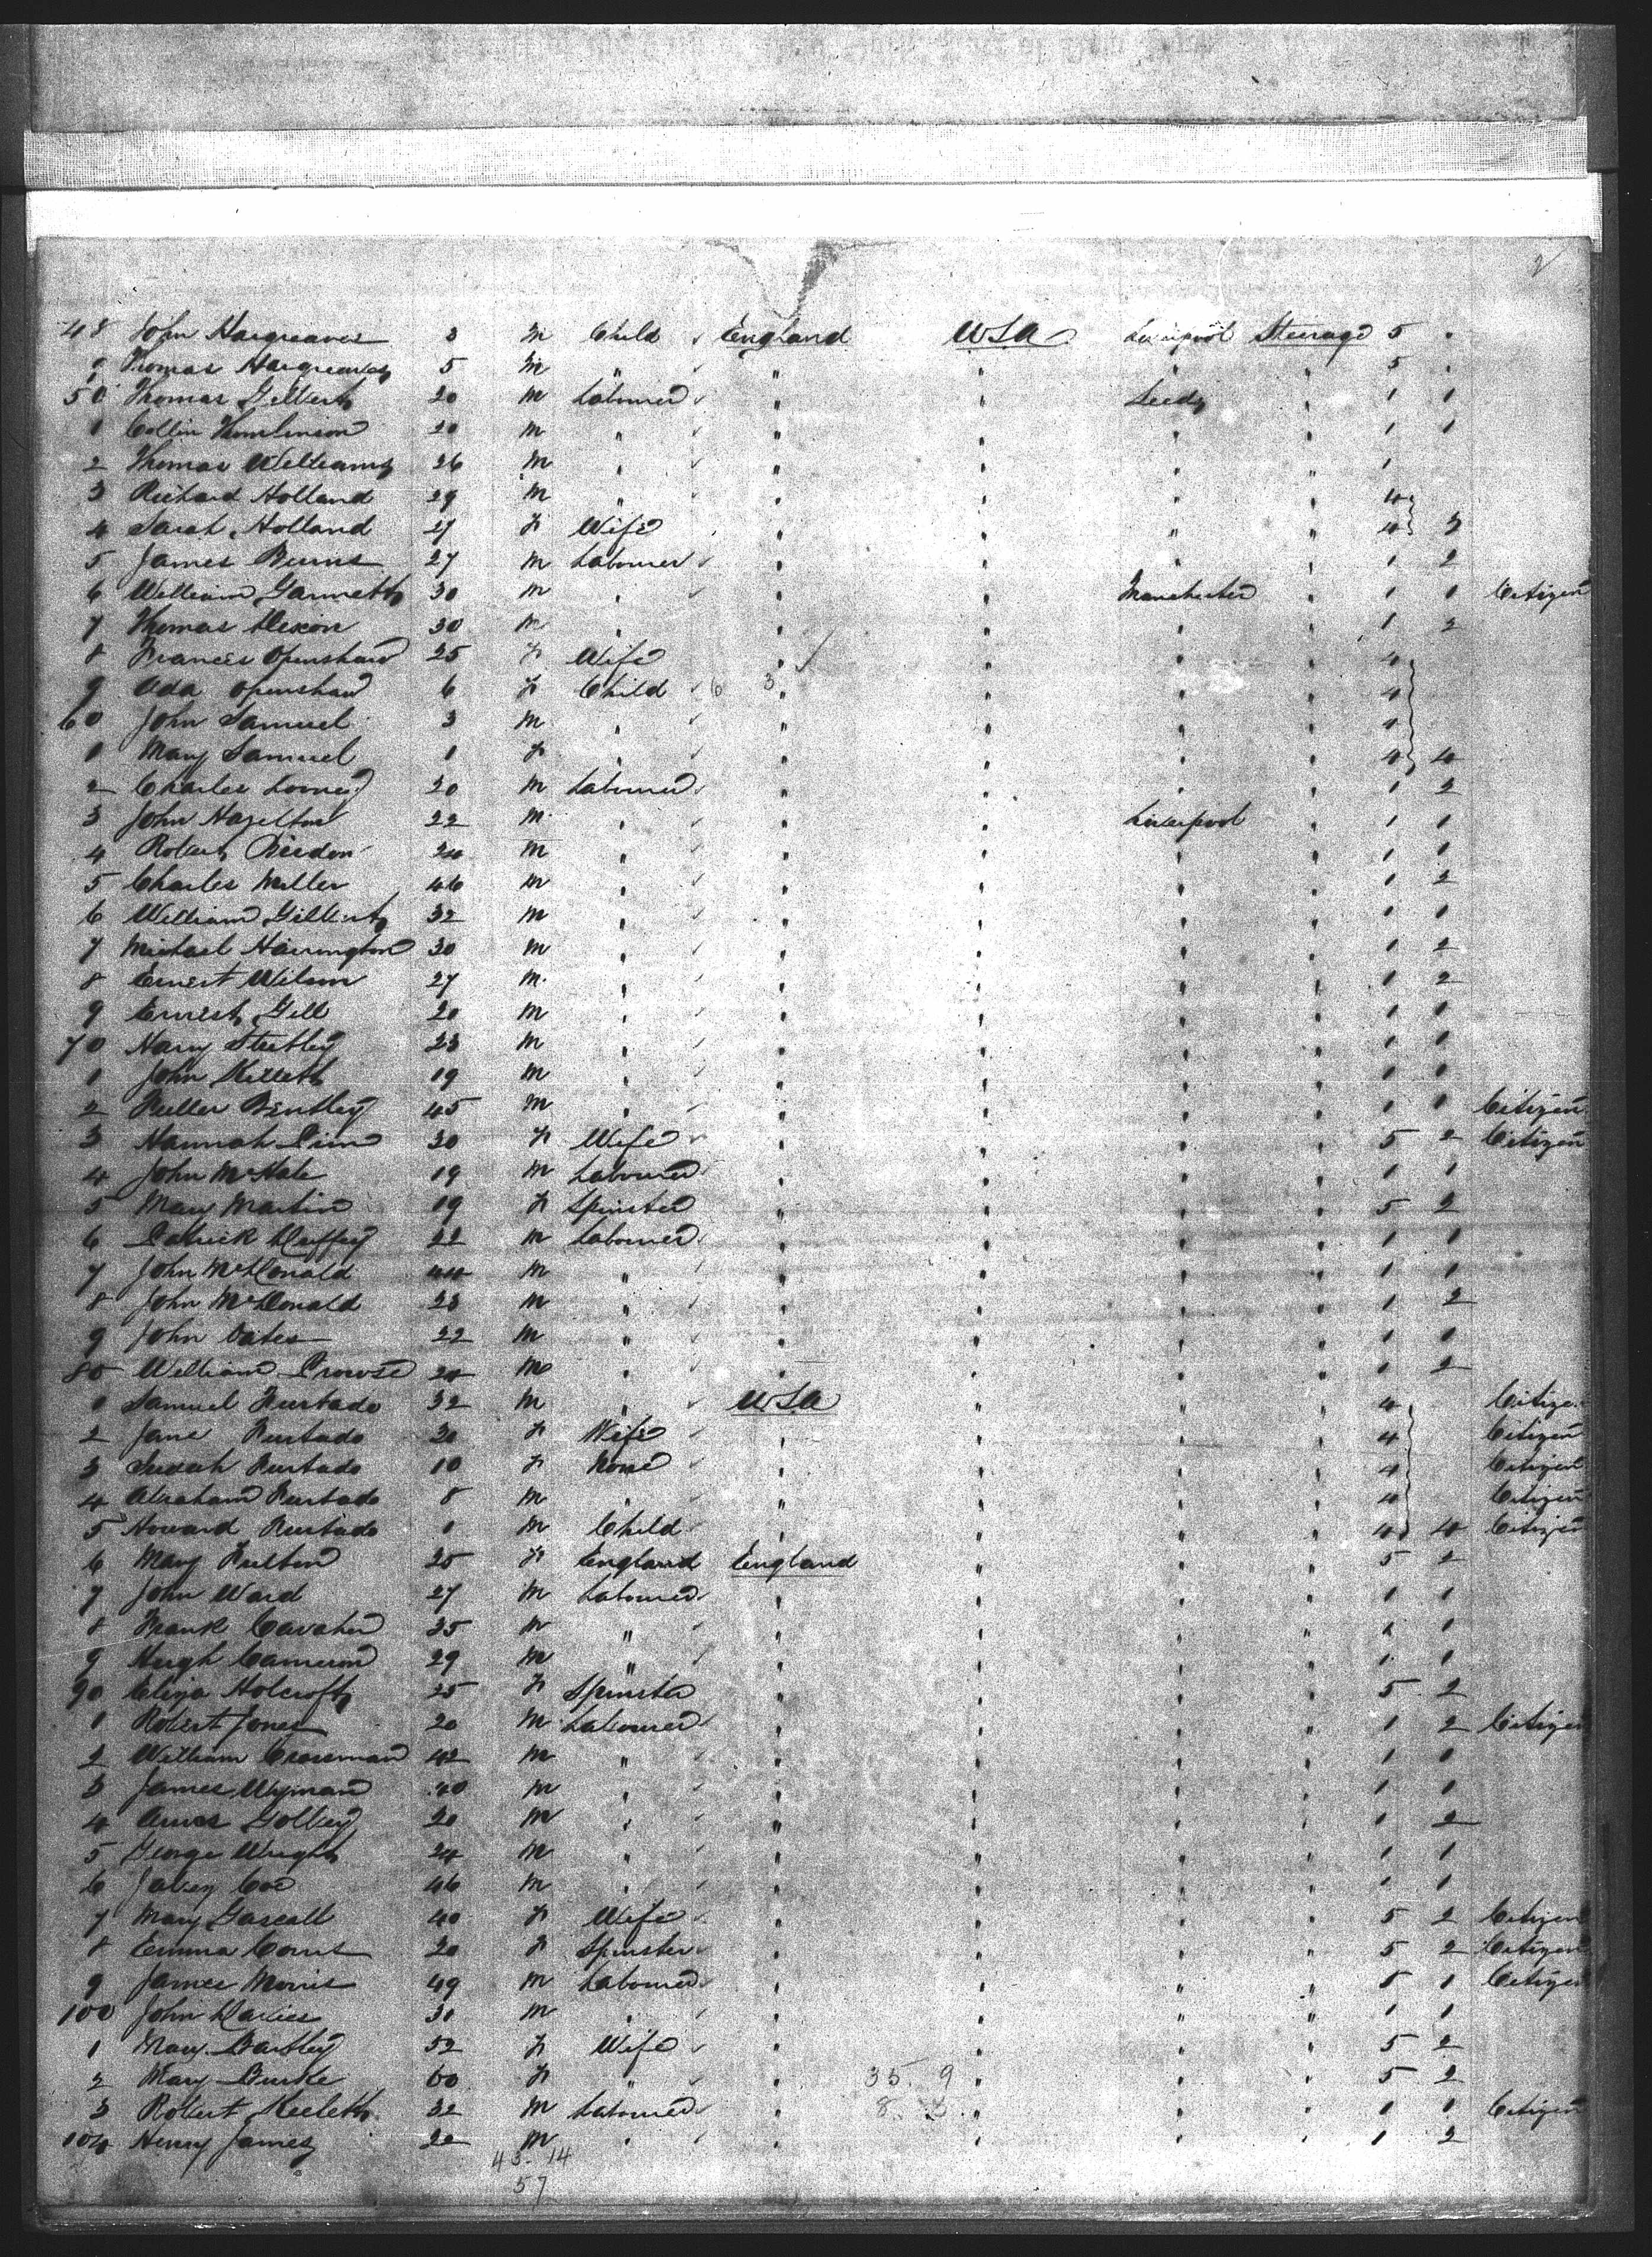 2
48 John Hargreaves 3 m Child England USA Liverpool Steerage 5 "
9 Thomas Hargreaves 5 m " " " " " 5 "
50 Thomas Gilbert 20 m Labourer " " Leeds " 1 1
1 Collin Tomlinson 20 m " " " " " 1 1
2 Thomas Williams 26 m " " " " " 1
3 Richard Holland 29 m " " " " " 4
4 Sarah Holland 27 F Wife " " " " 4 3
5 James Burns 27 m Labourer " " " " 1 2
6 William Garnett 30 m " " " Manchester " 1 1 Citizen
7 Thomas Dixon 30 m " " " " " 1 2
8 Frances Openshaw 25 F Wife " " " " 4
9 Ada Openshaw 6 F Child 6 3 " " " " 4
60 John Samuel 3 m " " " " " 4
1 Mary Samuel 1 F " " " " " 4 4
2 Charles 20 m Labourer " " " " 1 2
3 John Hazelton 22 m " " " Liverpool " 1 1
4 Robert 24 m " " " " " 1 1
5 Charles Miller 46 m " " " " " 1 2
6 William Gilbert 32 m " " " " " 1 1
7 Michael Harrington 30 m " " " " " 1 2
8 Ernest Wilson 27 m " " " " " 1 2
9 Ernest Gill 20 m " " " " " 1 1
70 Harry 23 m " " " " " 1 1
1 John 19 m " " " " " 1 1
2 Bentley 45 m " " " " " 1 1 Citizen
3 Hannah 30 F Wife " " " " 5 2 Citizen
4 John McHale 19 m Labourer " " " " 1 1
5 Mary Martin 19 F Spinster " " " " 5 2
6 Patrick Duffey 22 m Labourer " " " " 1 1
7 John McDonald 44 m " " " " " 1 1
8 John McDonald 23 m " " " " " 1 2
9 John Oates 22 m " " " " " 1 1
80 William Prowse m " " " " " 1 2
1 Samuel Furtado 32 m " USA " " " 4 Citizen
2 Jane Furtado 30 F Wife " " " " 4 Citizen
3 Furtado 10 F None " " " " 4 Citizen
4 Abraham Furtado 8 m " " " " " 4 Citizen
5 Howard Furtado 1 m Child " " " " 4 4 Citizen
6 Mary 25 F England England " " " 5 2
7 John Ward 27 m Labourer " " " " 1 1
8 Frank 35 m " " " " " 1 1
9 Hugh Cameron 29 m " " " " " 1 1
90 Eliza Holcroft 25 F Spinster " " " " 5 2
1 Robert Jones 20 m Labourer " " " " 1 2 Citizen
2 William Crossman 42 m " " " " " 1 1
3 James Wyman 40 m " " " " " 1 1
4 20 m " " " " " 1 2
5 George Wright 24 m " " " " " 1 1
6 Jabez Coe 46 m " " " " " 1 1
7 Mary Gascall 40 F Wife " " " " 5 2 Citizen
8 Emma 20 F Spinster " " " " 5 2 Citizen
9 James Morris 49 m Labourer " " " " 1 Citizen
100 John Davies 31 m " " " " " 1 1
1 Mary 52 F Wife " " " " 5 2
2 Mary Burke 60 F " " 35. 9 " " " 5 2
3 Robert 32 m Labourer " 8. 5. " " " 1 1 Citizen
104 Henry James 22 m " " " " " 1 2
43. 14
57